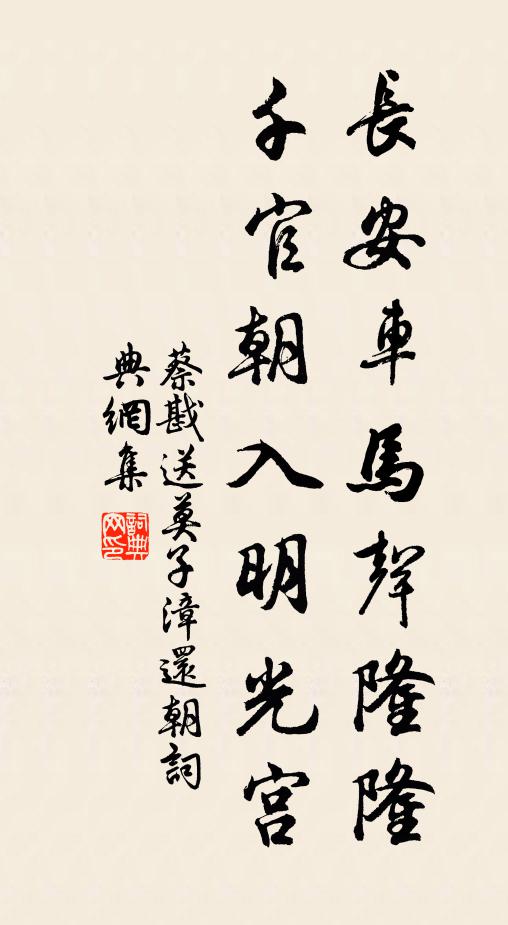 長安車馬聲隆隆
千官朝入明光宮
蔡戡送莫子漳還朝詞
典網集
詞典
網印